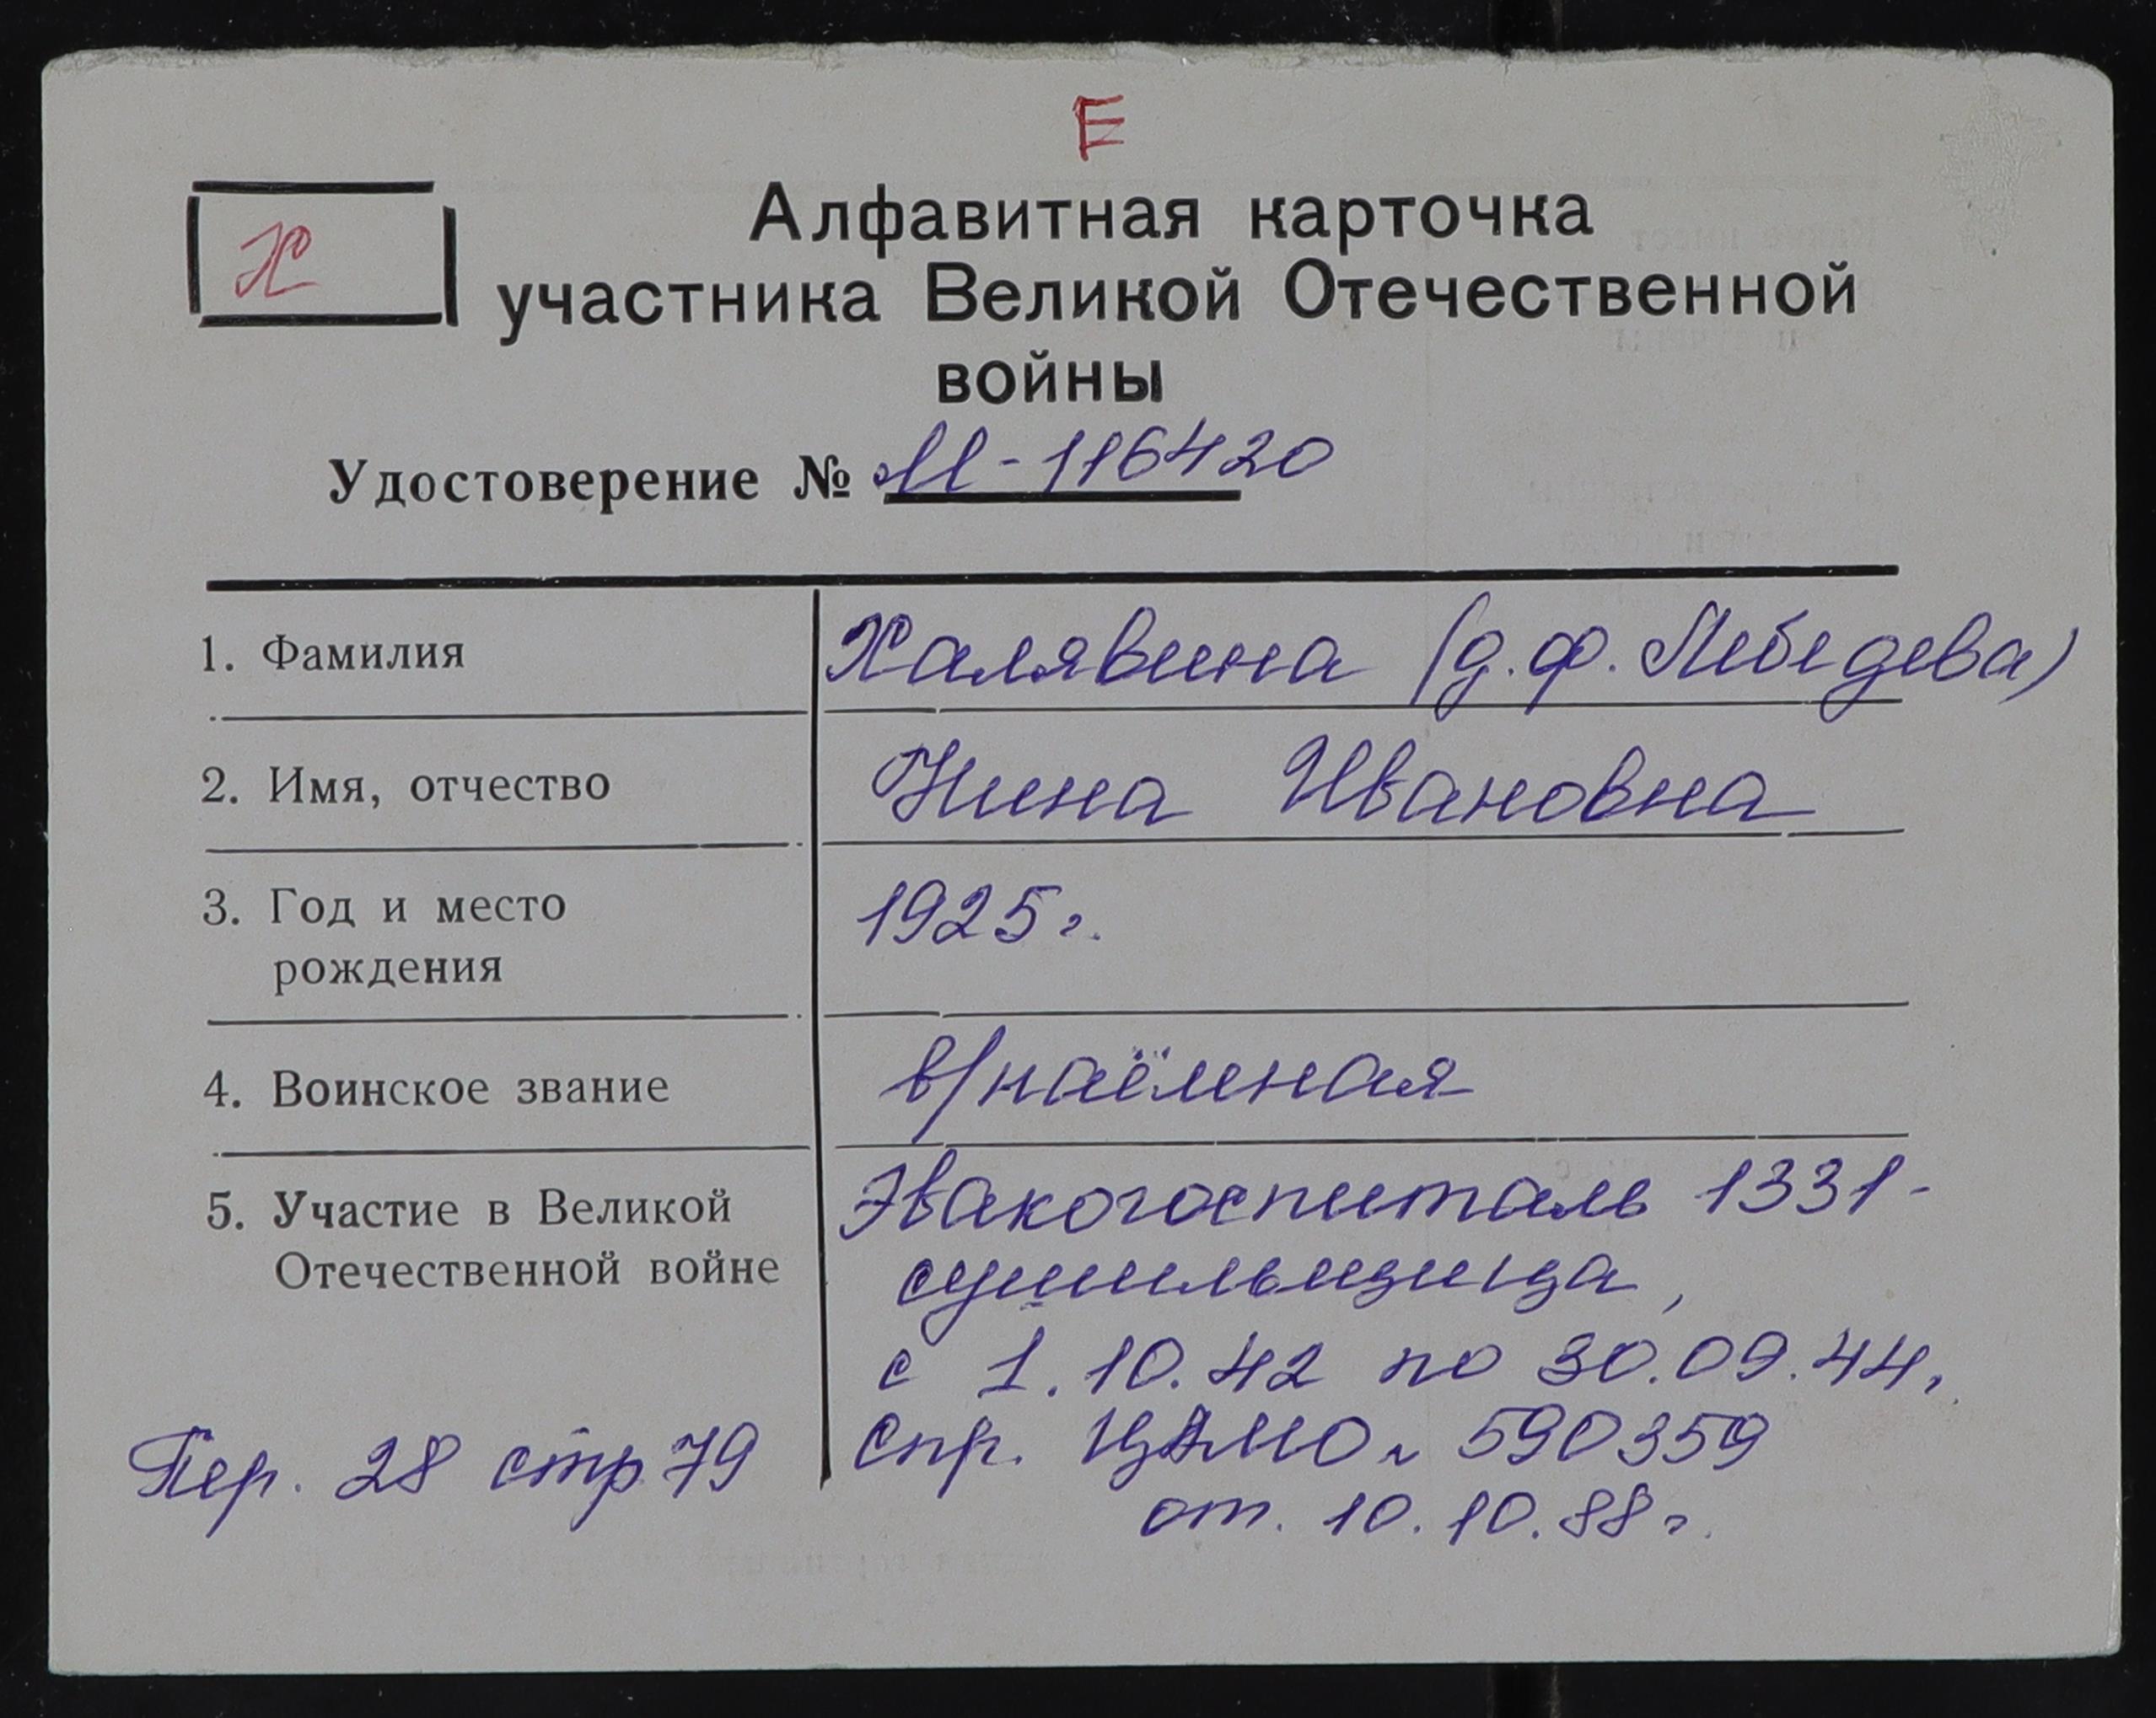 Е
Х
Алфавитная карточка
участника Великой Отечественной
войны
Удостоверение № М-116420
1. Фамилия Халявина (д.ф. Лебедева)
2. Имя, отчество Нина Ивановна
3. Год и место 1925г.
рождения
4. Воинское звание в/наёмная
5. Участие в Великой Эвакогоспиталь 1331-
Отечественной войне сушильщица,
с 1.10.42 по 30.09.44,
Пер. 28 стр 79 Спр. ЦАМО 590359
от. 10.10.88г.